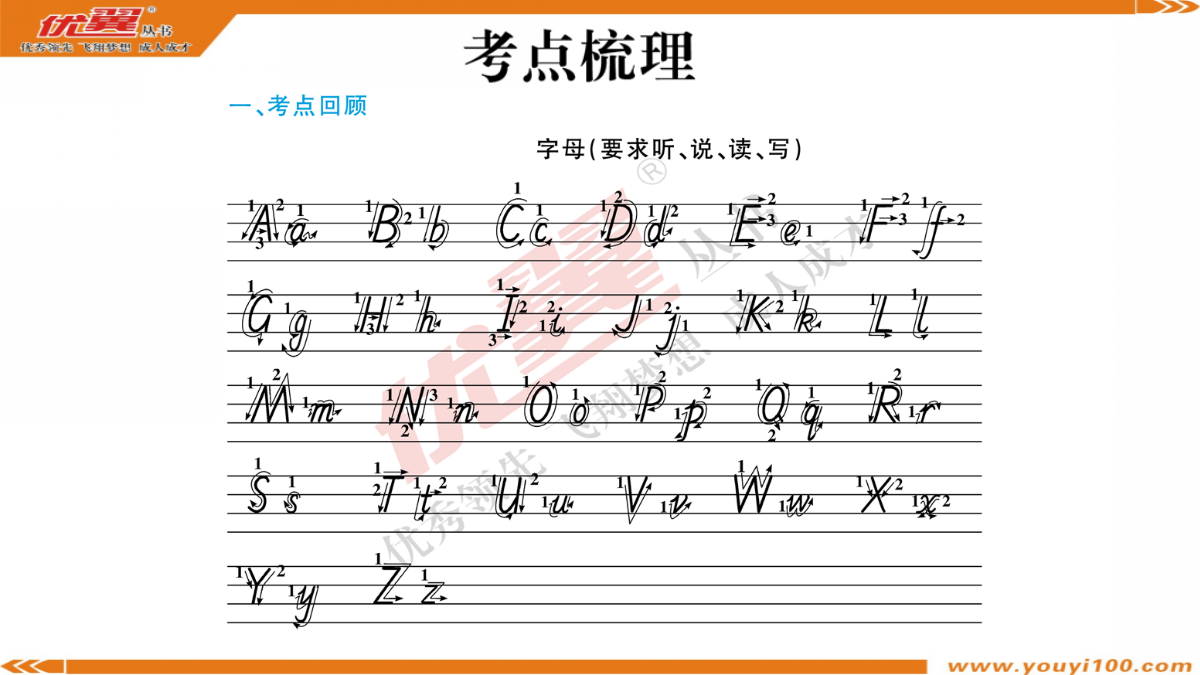 优翼丛书®
优秀领先 飞翔梦想 成人成才
考点梳理
一、考点回顾
字母(要求听、说、读、写)
Aa Bb Cc Dd Ee Ff
Gg Hh Ii Jj Kk Ll
Mm Nn Oo Pp Qq Rr
Ss Tt Uu Vv Ww Xx
Yy Zz
优翼丛书®
优秀领先 飞翔梦想 成人成才
www.youyi100.com